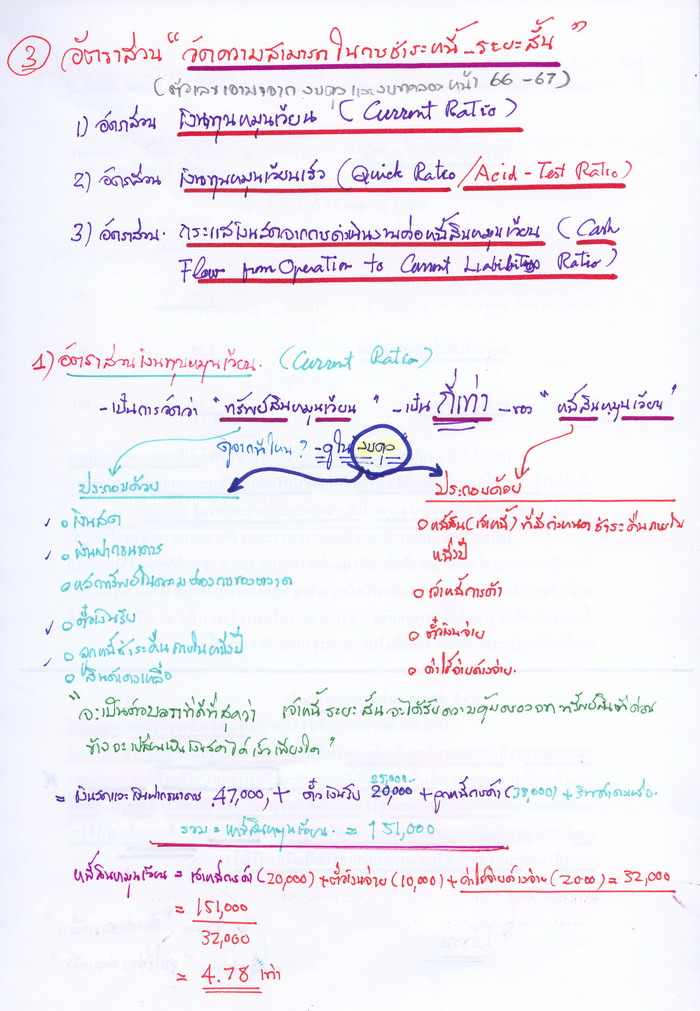 ③ อัตราส่วน "วัดความสามารถในการชำระหนี้ - ระยะสั้น"
(ตัวเลขเอามาจาก งบดุล และงบทดลอง หน้า 66-67)
1) อัตราส่วน เงินทุนหมุนเวียน (Current Ratio)
2) อัตราส่วน เงินทุนหมุนเวียนเร็ว (Quick Ratio /Acid-Test Ratio)
3) อัตราส่วน. กระแสเงินสดจากการดำเนินงานต่อหนี้สินหมุนเวียน (Cash
Flow from Operation to Current Liabilities Ratio)
1) อัตราส่วนเงินทุนหมุนเวียน. (Current Ratio)
- เป็นการวัดว่า "ทรัพย์สินหมุนเวียน" - เป็น กี่เท่า - ของ "หนี้สินหมุนเวียน"
ดูจากที่ไหน? - ดูใน งบดุล
ประกอบด้วย
✓ o เงินสด
✓ o เงินฝากธนาคาร
o หลักทรัพย์ในความต้องการของตลาด
✓ o ตั๋วเงินรับ
o ลูกหนี้ชำระคืนภายในหนึ่งปี
✓ o สินค้าคงเหลือ
ประกอบด้วย
o หนี้สิน (เจ้าหนี้) ที่มีกำหนดชำระคืนภายใน
หนึ่งปี
o เจ้าหนี้การค้า
o ตั๋วเงินจ่าย
o ค่าใช้จ่ายค้างจ่าย.
"จะเป็นตัวบอกที่ดีที่สุดว่า เจ้าหนี้ระยะสั้นจะได้รับความคุ้มครองจากทรัพย์สินที่ค่อน
ข้างจะเปลี่ยนเป็นเงินสดได้เร็วเพียงใด"
25,000.-
= เงินสดและเงินฝากธนาคาร 47,000, + ตั๋วเงินรับ 20,000 + ลูกหนี้การค้า (38,000) + สินค้าคงเหลือ.
รวม = หนี้สินหมุนเวียน. = 151,000
หนี้สินหมุนเวียน = เจ้าหนี้การค้า (20,000) + ตั๋วเงินจ่าย (10,000) + ค่าใช้จ่ายค้างจ่าย (2000) = 32,000
= 151,000
32,000
= 4.78 เท่า